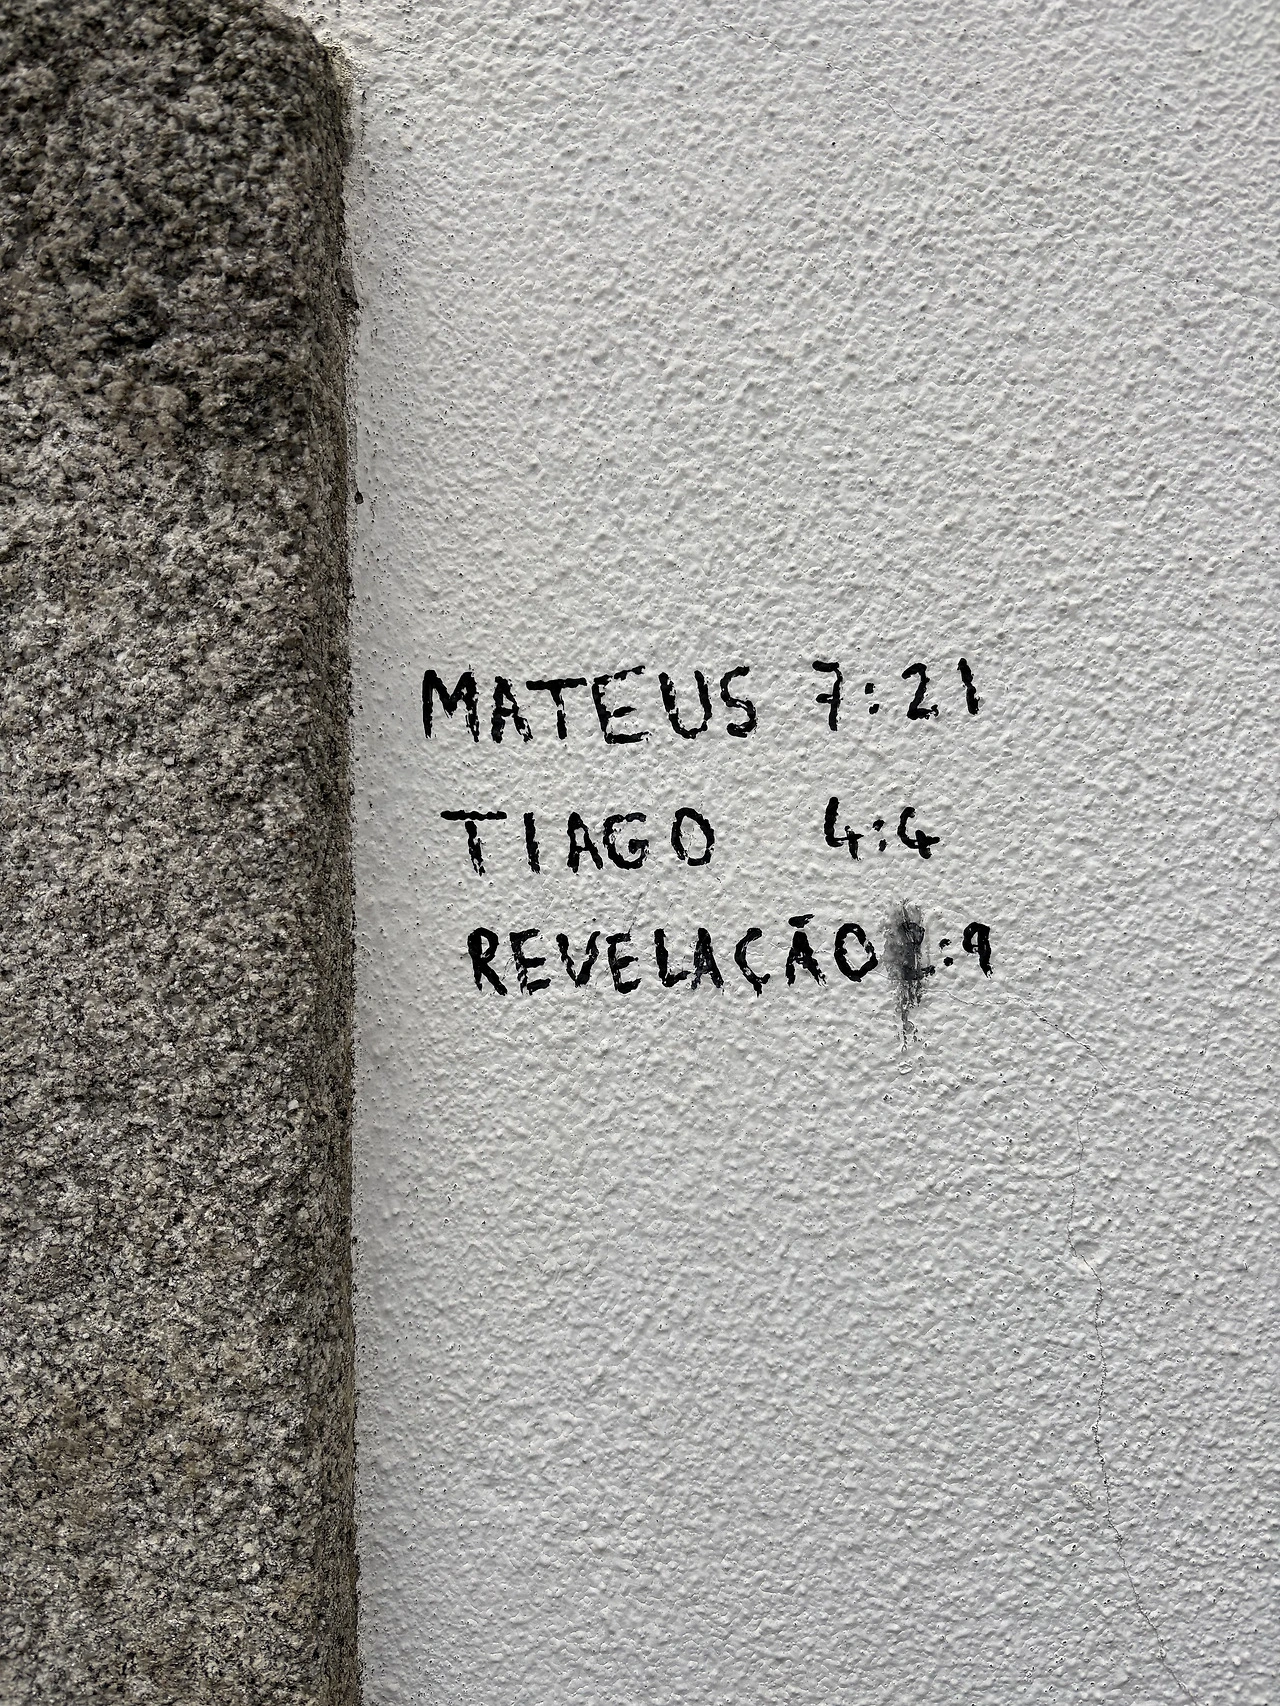 MATEUS 7:21
TIAGO 4:4
REVELAÇÃO :9